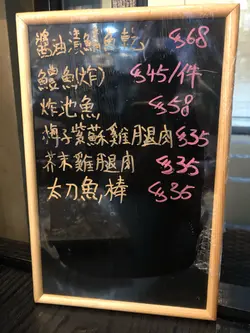 醬油漬鯖魚乾 $68
鱧魚(炸) $45/件
炸池魚 $58
梅子紫蘇雞腿肉 $35
芥末雞腿肉 $35
太刀魚棒 $35